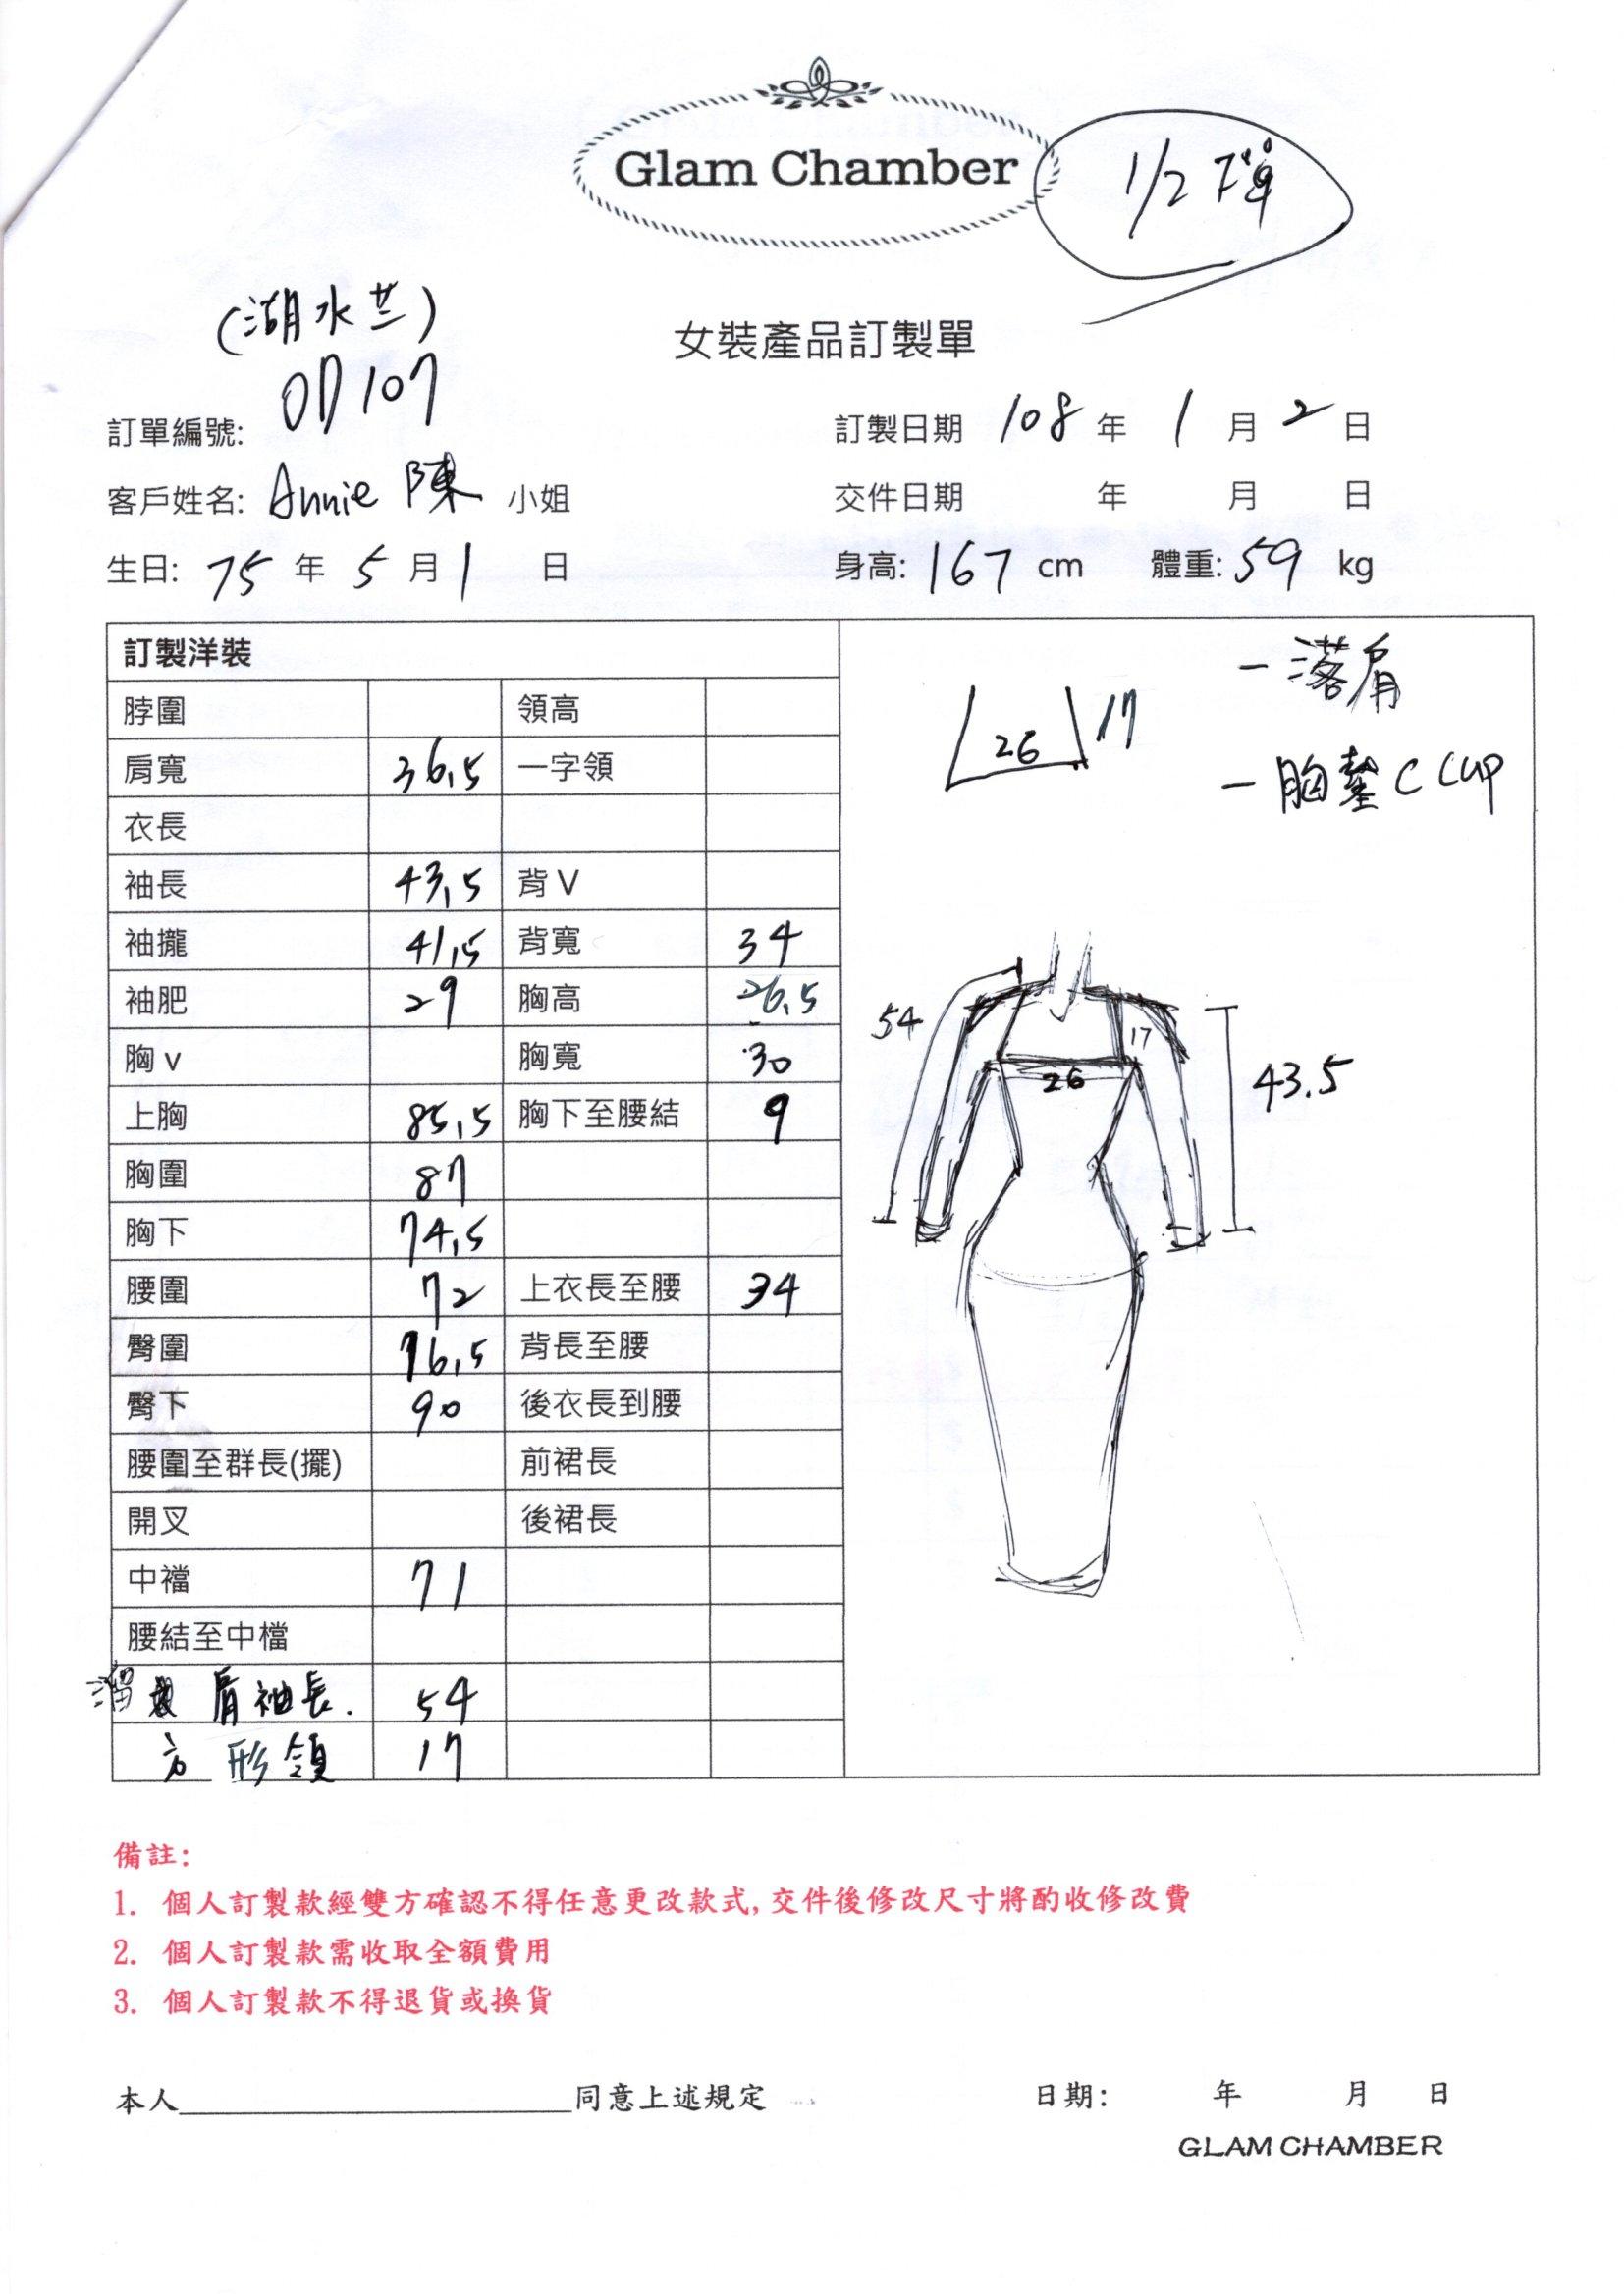 Glam Chamber
1/2 下單
(湖水芒)
女裝產品訂製單
訂單編號: OD107
訂製日期 108 年 1 月 2 日
客戶姓名: Annie 陳 小姐
交件日期 年 月 日
生日: 75 年 5 月 1 日
身高: 167 cm 體重: 59 kg
訂製洋裝
脖圍 領高
肩寬 36,5 一字領
衣長
袖長 43,5 背 V
袖攏 41,5 背寬 34
袖肥 29 胸高 26,5
胸 v 胸寬 30
上胸 85,5 胸下至腰結 9
胸圍 87
胸下 74,5
腰圍 72 上衣長至腰 34
臀圍 76,5 背長至腰
臀下 90 後衣長到腰
腰圍至群長(擺) 前裙長
開叉 後裙長
中襠 71
腰結至中檔
肩袖長. 54
方形領 17
26 17
- 落肩
- 胸墊 C CUP
54
17
26
43.5
備註:
1. 個人訂製款經雙方確認不得任意更改款式, 交件後修改尺寸將酌收修改費
2. 個人訂製款需收取全額費用
3. 個人訂製款不得退貨或換貨
本人 同意上述規定 日期: 年 月 日
GLAM CHAMBER